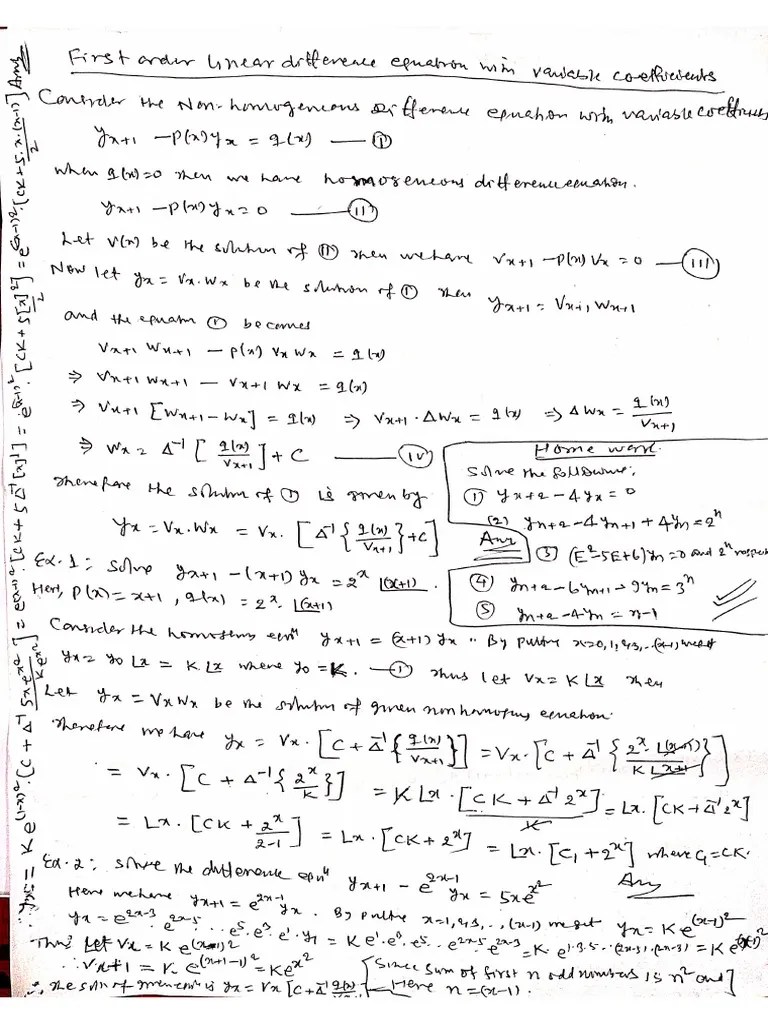 First order linear difference equation with variable coefficients
Consider the Non-homogeneous difference equation with variable coefficients
y_{x+1} - P(x) y_x = q(x) — (I)
when q(x)=0 then we have homogeneous difference equation.
y_{x+1} - P(x) y_x = 0 — (II)
Let V(x) be the solution of (II) then we have V_{x+1} - P(x) V_x = 0 — (III)
Now let y_x = V_x . W_x be the solution of (I) then y_{x+1} = V_{x+1} W_{x+1}
and the equation (I) becomes
V_{x+1} W_{x+1} - P(x) V_x W_x = q(x)
⇒ V_{x+1} W_{x+1} - V_{x+1} W_x = q(x)
⇒ V_{x+1} [W_{x+1} - W_x] = q(x) ⇒ V_{x+1} . ΔW_x = q(x) ⇒ ΔW_x = q(x)/V_{x+1}
⇒ W_x = Δ^{-1} [ q(x)/V_{x+1} ] + C — (IV)
Therefore the solution of (I) is given by
y_x = V_x . W_x = V_x . [ Δ^{-1} { q(x)/V_{x+1} } + C ]
Home work.
Solve the following:
(1) y_{x+2} - 4 y_x = 0
(2) y_{n+2} - 4 y_{n+1} + 4 y_n = 2^n
Ans
(3) (E^2 - 5E + 6) y_n = 0 and 2^n
(4) y_{n+2} - 6 y_{n+1} - 9 y_n = 3^n
(5) y_{n+2} - 4 y_n = n-1
Ex. 1: Solve y_{x+1} - (x+1) y_x = 2^x ⌊(x+1).
Here, P(x) = x+1, q(x) = 2^x . ⌊(x+1)
Consider the eqn y_{x+1} = (x+1) y_x . By putting x=0,1,2,3,..(x-1) we get
y_x = y_0 ⌊x = K ⌊x where y_0 = K. — (I) Thus let V_x = K ⌊x then
Let y_x = V_x W_x be the solution of given non equation.
Therefore we have y_x = V_x . [ C + Δ^{-1} { q(x)/V_{x+1} } ] = V_x . [ C + Δ^{-1} { 2^x . ⌊(x+1) / K ⌊x+1 } ]
= V_x . [ C + Δ^{-1} { 2^x/K } ] = K ⌊x . [ CK + Δ^{-1} 2^x ]/K = ⌊x . [ CK + Δ^{-1} 2^x ]
= ⌊x . [ CK + 2^x/(2-1) ] = ⌊x . [ CK + 2^x ] = ⌊x . [ C_1 + 2^x ] where C_1 = CK.
Ans
Ex. 2: Solve the difference eqn y_{x+1} - e^{2x-1} y_x = 5x e^{x^2}
Here we have y_{x+1} = e^{2x-1} y_x . By putting x=1,2,3,..,(x-1) we get y_x = K e^{(x-1)^2}
y_x = e^{2x-3} . e^{2x-5} ... e^5 . e^3 . e^1 . y_1 = K e^1 . e^3 . e^5 ... e^{2x-5} . e^{2x-3} = K . e^{1.3.5...(2x-3).(2x-3)} = K e^{(x-1)^2}
Thus Let V_x = K e^{(x-1)^2}
∴ V_{x+1} = K e^{(x+1-1)^2} = K e^{x^2} [Since sum of first n odd numbers is n^2 and
Here n = (x-1).]
∴ the soln of given eqn is y_x = V_x [ C + Δ^{-1} q(x)/V_{x+1} ]
∴ y_x = K e^{(1-x)^2} . [ C + Δ^{-1} 5x e^{x^2}/K e^{x^2} ] = e^{(x-1)^2} . [ CK + 5 Δ^{-1} [x]^1 ] = e^{(x-1)^2} . [ CK + 5 [x]^2/2 ] = e^{(x-1)^2} . [ CK + 5.x.(x-1)/2 ] Ans